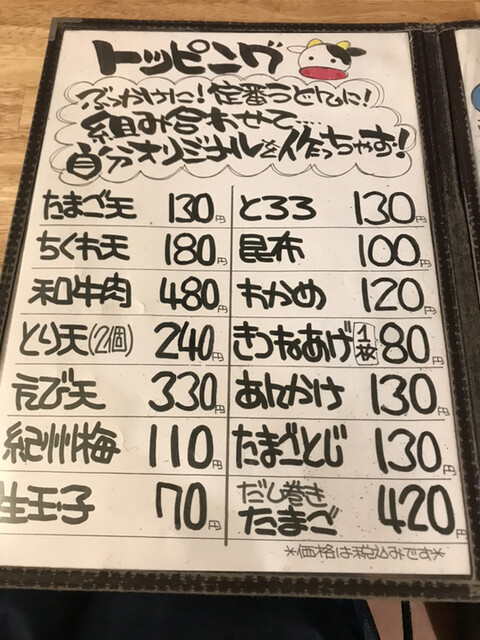 トッピング
ぶっかけに!定番うどんに!
組み合わせて…
自分オリジナルを作っちゃす!
たまご天 130円
ちくわ天 180円
和牛肉 480円
とり天(2個) 240円
えび天 330円
紀州梅 110円
生玉子 70円
とろろ 130円
昆布 100円
わかめ 120円
きつねあげ 1枚 80円
あんかけ 130円
たまごとじ 130円
だし巻き
たまご 420円
*価格は税込みです*